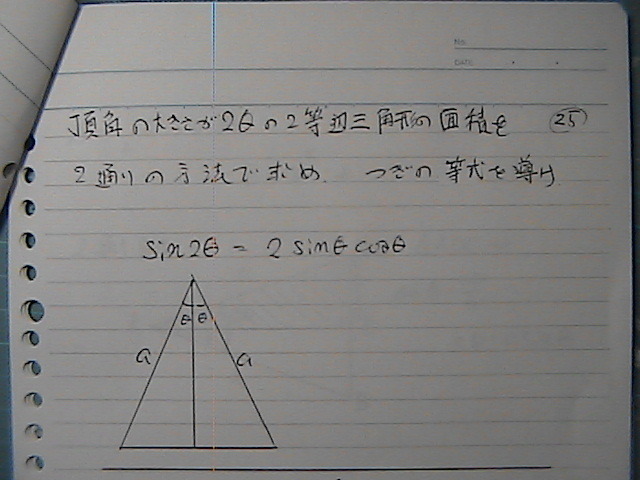 No.
DATE
頂角の大きさが2θの2等辺三角形の面積を ㉕
2通りの方法で求め、つぎの等式を導け
sin2θ = 2 sinθ cosθ
θ θ
a a